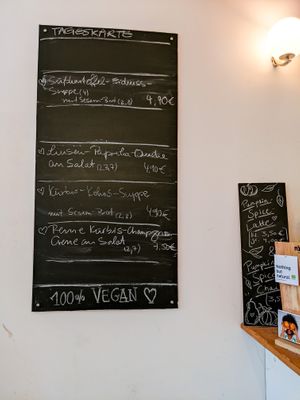 TAGESKARTE
♡ Süßkartoffel-Erdnuss-
Suppe (4)
mit Sesam-Brot (2,2) 4,90€
♡ Linsen-Paprika-Quiche
an Salat (2,3,7) 4,10€
♡ Kürbis-Kokos-Suppe
mit Sesam-Brot (2,2) 4,90€
♡ Penne Kürbis-Champignon
Creme an Salat
(2,7) 7,50€
100% VEGAN ♡
Pumpkin
Spice
Latte
3,50€
Pumpkin
Spice
Chai
Nothing
but
natural